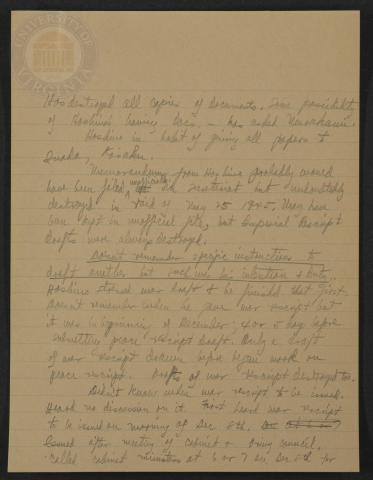 UNIVERSITY OF VIRGINIA
Has destroyed all copies of documents. Some possibility
of Hoshino's having docs. – has asked
Hoshino in habit of giving all papers to
Inada, Kosaku.
Memorandum from Hoshino probably would
have been filed unofficially in Secretariat but undoubtedly
destroyed in raid of May 25 1945. May have
been kept in unofficial file, but Imperial Rescript
drafts were always destroyed.
Doesn't remember specific instructions to
draft another but such was his intention & duty.
Hoshino stressed war draft & he finished that first.
Doesn't remember when he gave war rescript but
it was in beginning of December; 4 or 5 days before
submitting peace rescript draft. Only a draft
of war rescript drawn before began work on
peace rescript. Drafts of war rescript destroyed too.
Didn't know when war rescript to be issued.
Heard no discussion on it. First heard war rescript
to be issued on morning of Dec 8th.
Issued after meeting of cabinet & Privy Council.
Called cabinet ministers at 6 or 7 on Dec 8th for